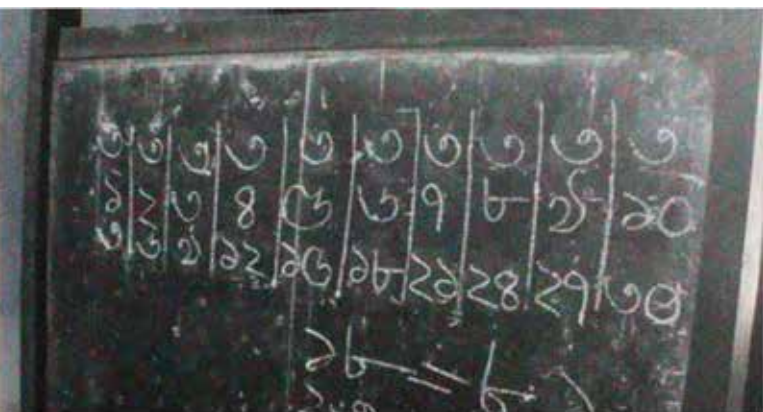 ৩ ৩ ৩ ৩ ৩ ৩ ৩ ৩ ৩ ৩
১ ২ ৩ ৪ ৫ ৬ ৭ ৮ ৯ ১০
৩ ৬ ৯ ১২ ১৫ ১৮ ২১ ২৪ ২৭ ৩০
১৮